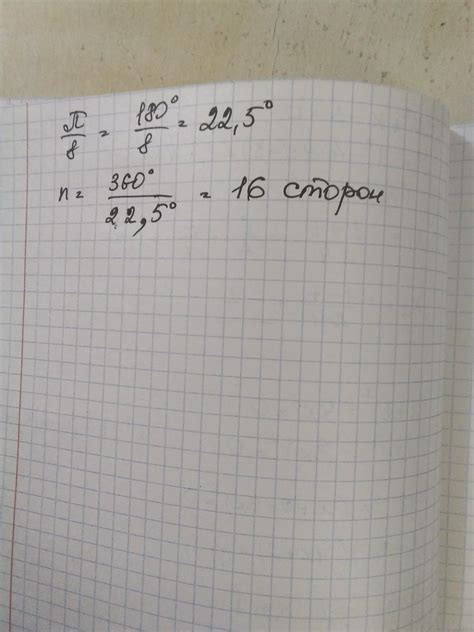 π/8 = 180°/8 = 22,5°
n = 360°/22,5° = 16 сторон